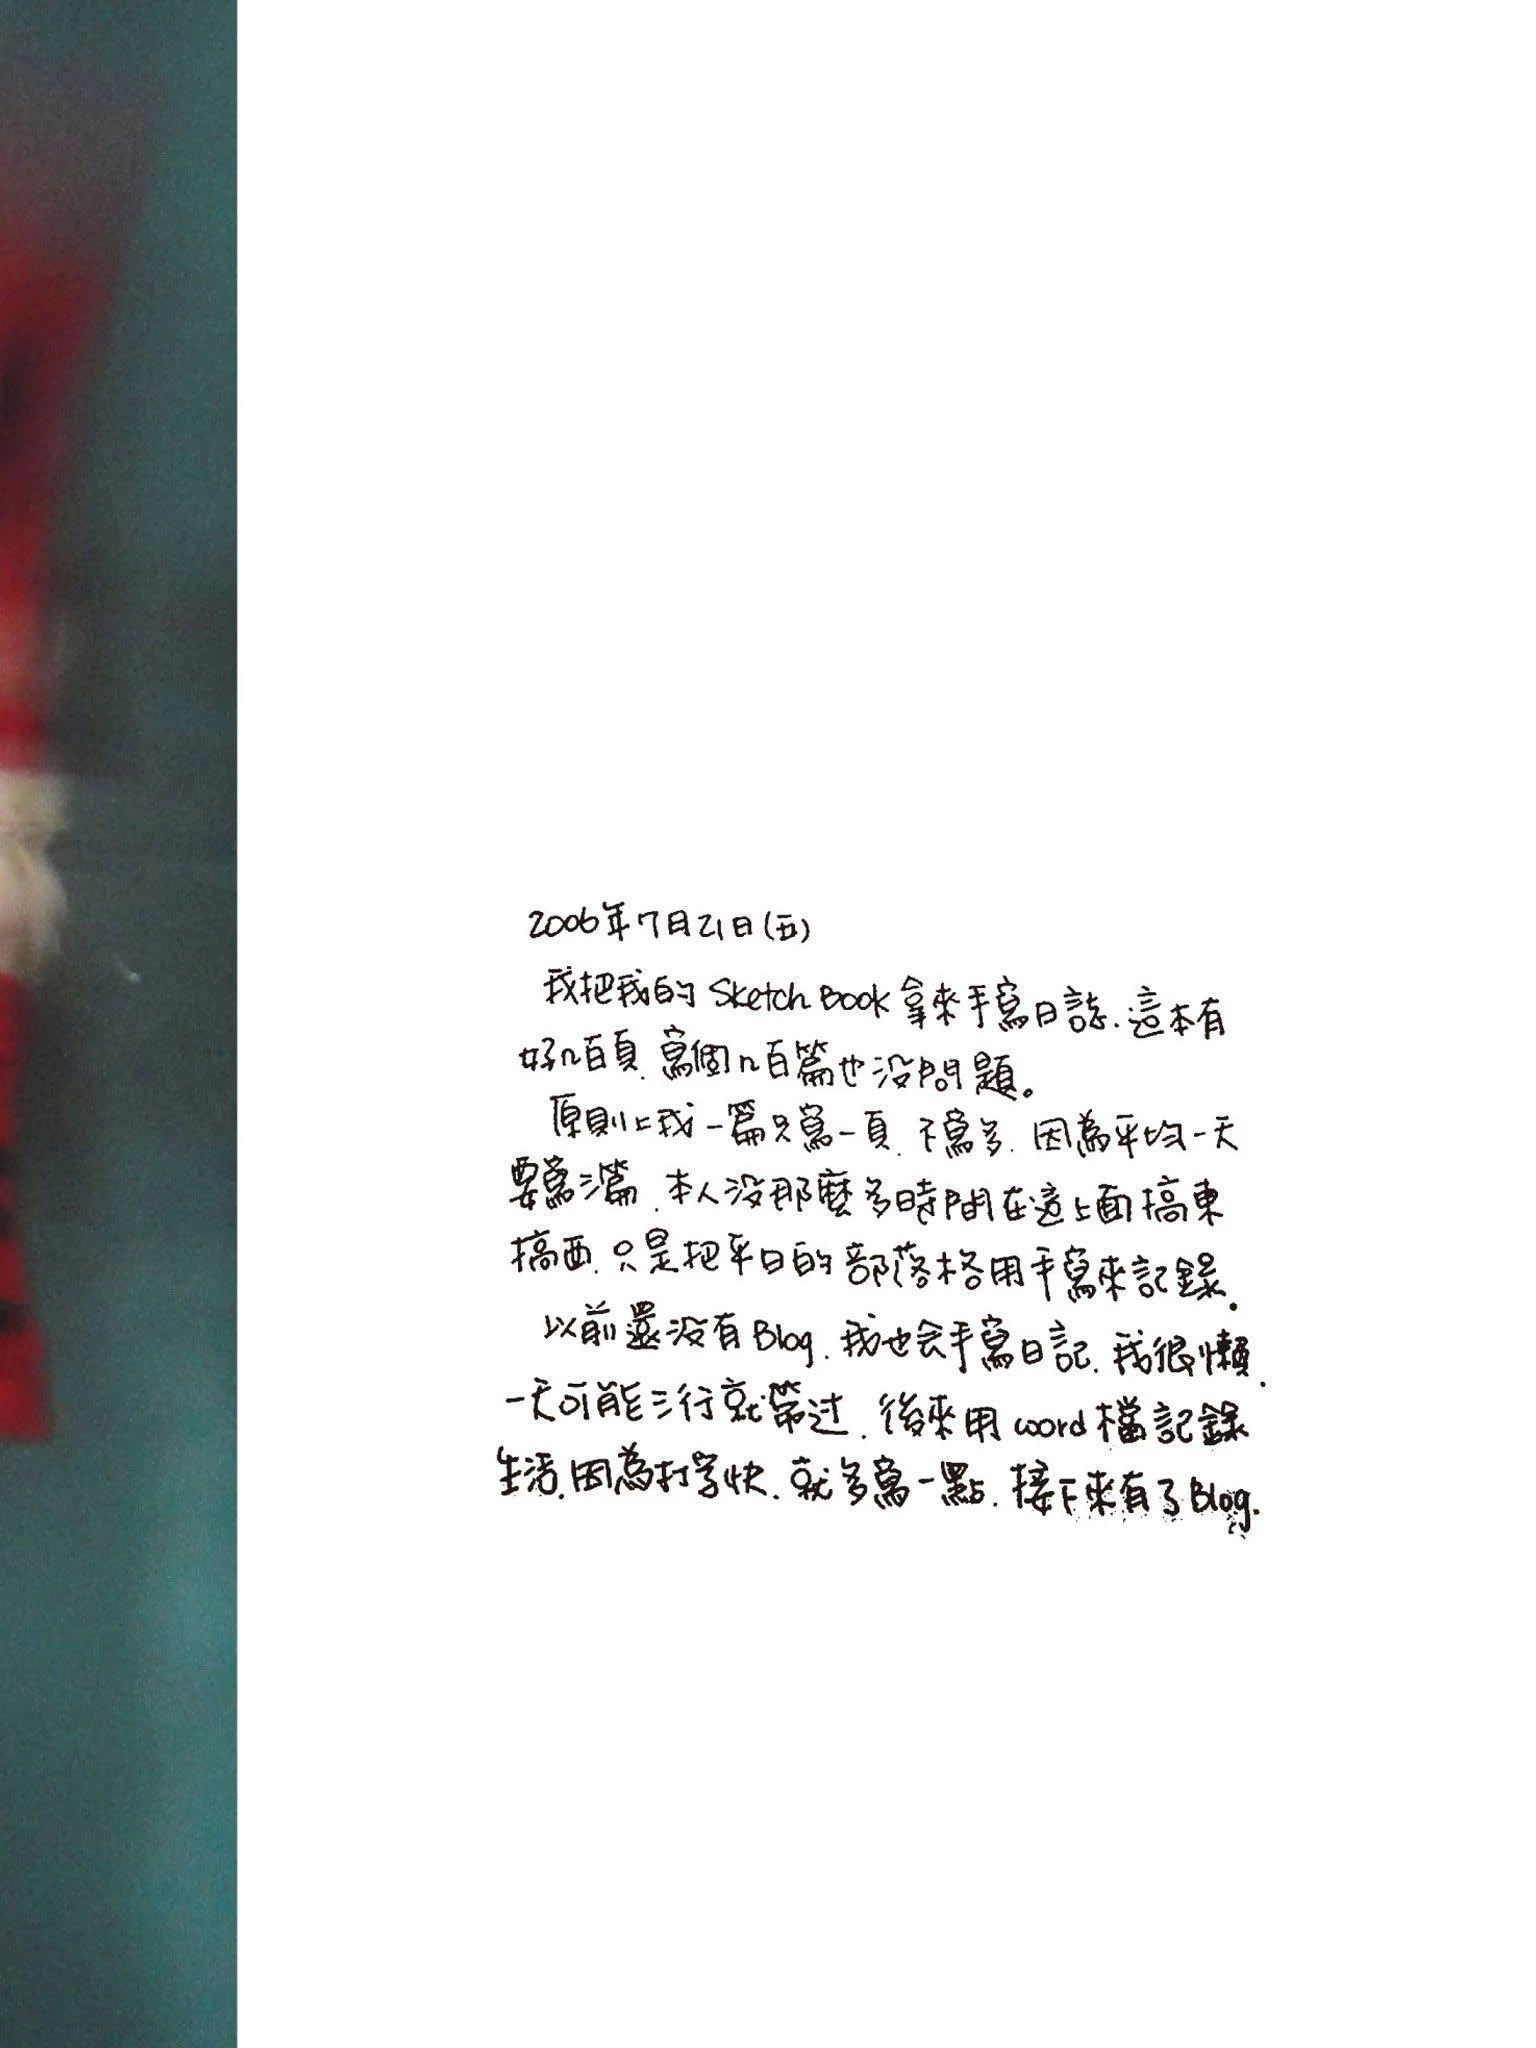 2006年7月21日(五)
我把我的Sketch Book拿來手寫日誌.這本有
好几百頁.寫個几百篇也没問題。
原則上我一篇只寫一頁.不寫多.因為平均一天
要寫三篇.本人没那麼多時間在這上面搞東
搞西.只是把平日的部落格用手寫來記錄.
以前還没有Blog.我也会手寫日記.我很懶.
一天可能三行就帶过.後來用word檔記錄
生活.因為打字快.就多寫一點.接下來有了Blog.